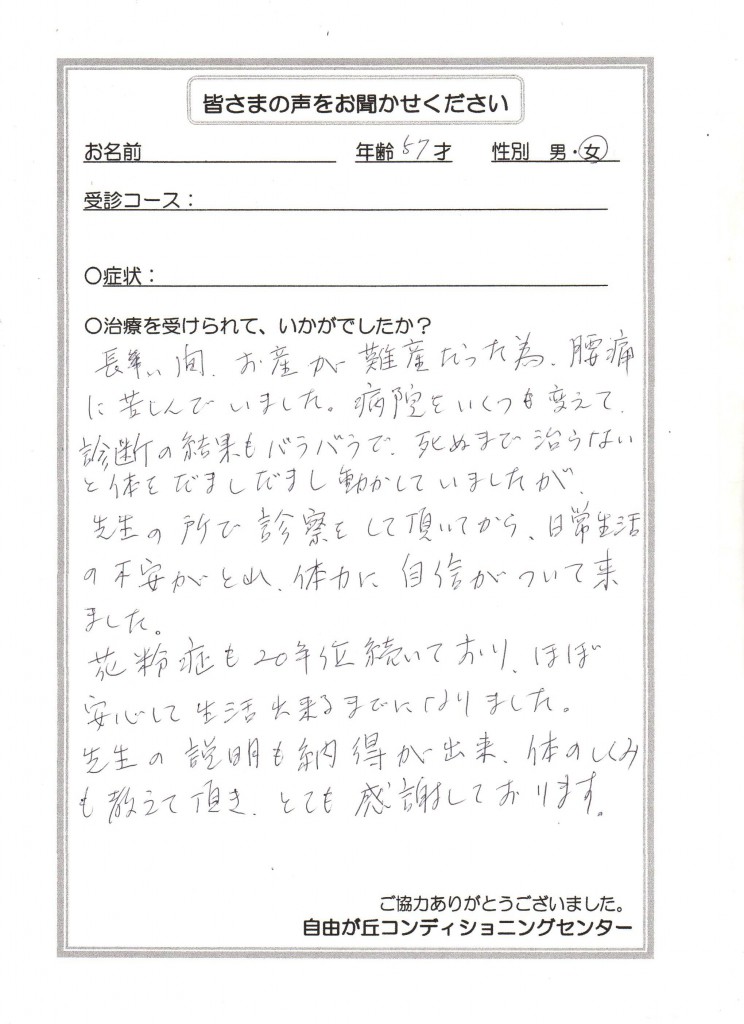 皆さまの声をお聞かせください
お名前 年齢 57 才 性別 男・女
受診コース：
○症状：
○治療を受けられて、いかがでしたか？
長い間、お産が難産だった為、腰痛
に苦しんでいました。病院をいくつも変えて、
診断の結果もバラバラで、死ぬまで治らない
と体をだましだまし動かしていましたが、
先生の所で診察をして頂いてから、日常生活
の不安がとれ、体力に自信がついて来
ました。
花粉症も20年位続いており、ほぼ
安心して生活出来るまでになりました。
先生の説明も納得が出来、体のしくみ
も教えて頂き、とても感謝しております。
ご協力ありがとうございました。
自由が丘コンディショニングセンター